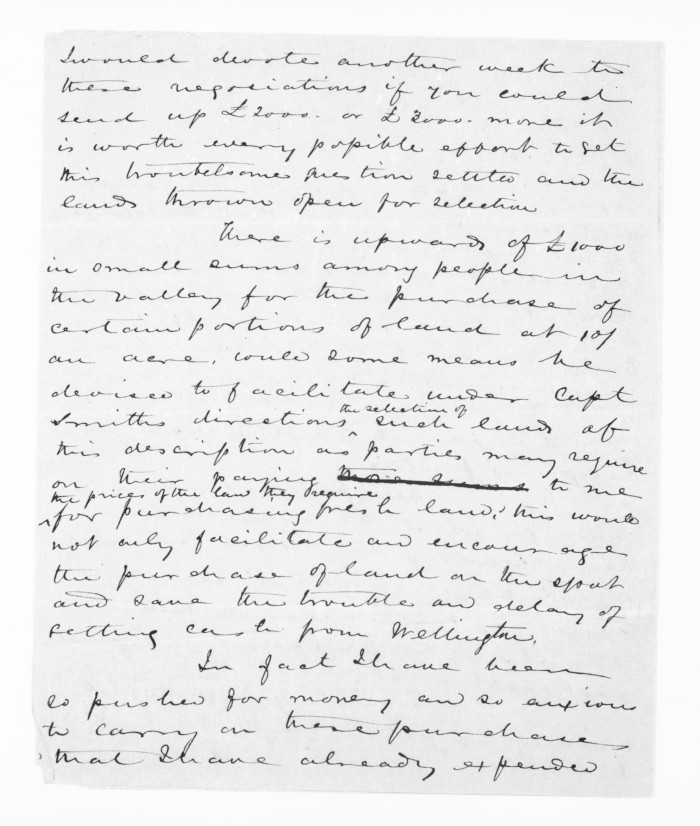 I would devote another week to
these negociations if you could
send up £2000. or £3000. more it
is worth every possible effort to get
this troubelsome question settled and the
lands thrown open for selection
There is upwards of £1000
in small sums among people in
the valley for the purchase of
certain portions of land at 10/
an acre, could some means be
devised to facilitate under Capt
Smiths directions, the selection of such lands of
this description as parties may require
on their paying to me
the prices of the land they require
for purchasing fresh land, this would
not only facilitate and encourage
the purchase of land on the spot
and save the trouble and delay of
getting cash from Wellington.
In fact I have been
so pushed for money and so anxious
to carry on these purchases
that I have already expended